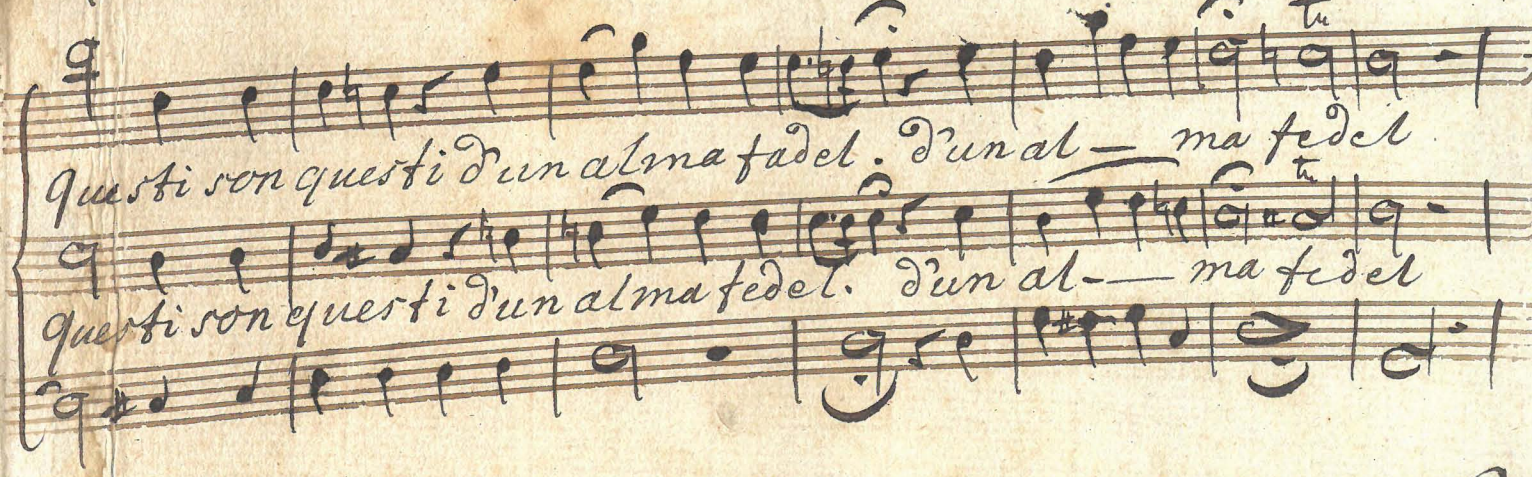 tr
questi son questi d'un alma fadel. d'un al - ma fedel
tr
questi son questi d'un alma fedel. d'un al - - ma fedel